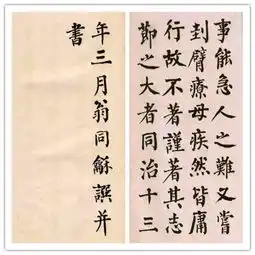 事能急人之難又嘗
刲臂療母疾然皆庸
行故不著謹著其志
節之大者同治十三
年三月翁同龢譔并
書